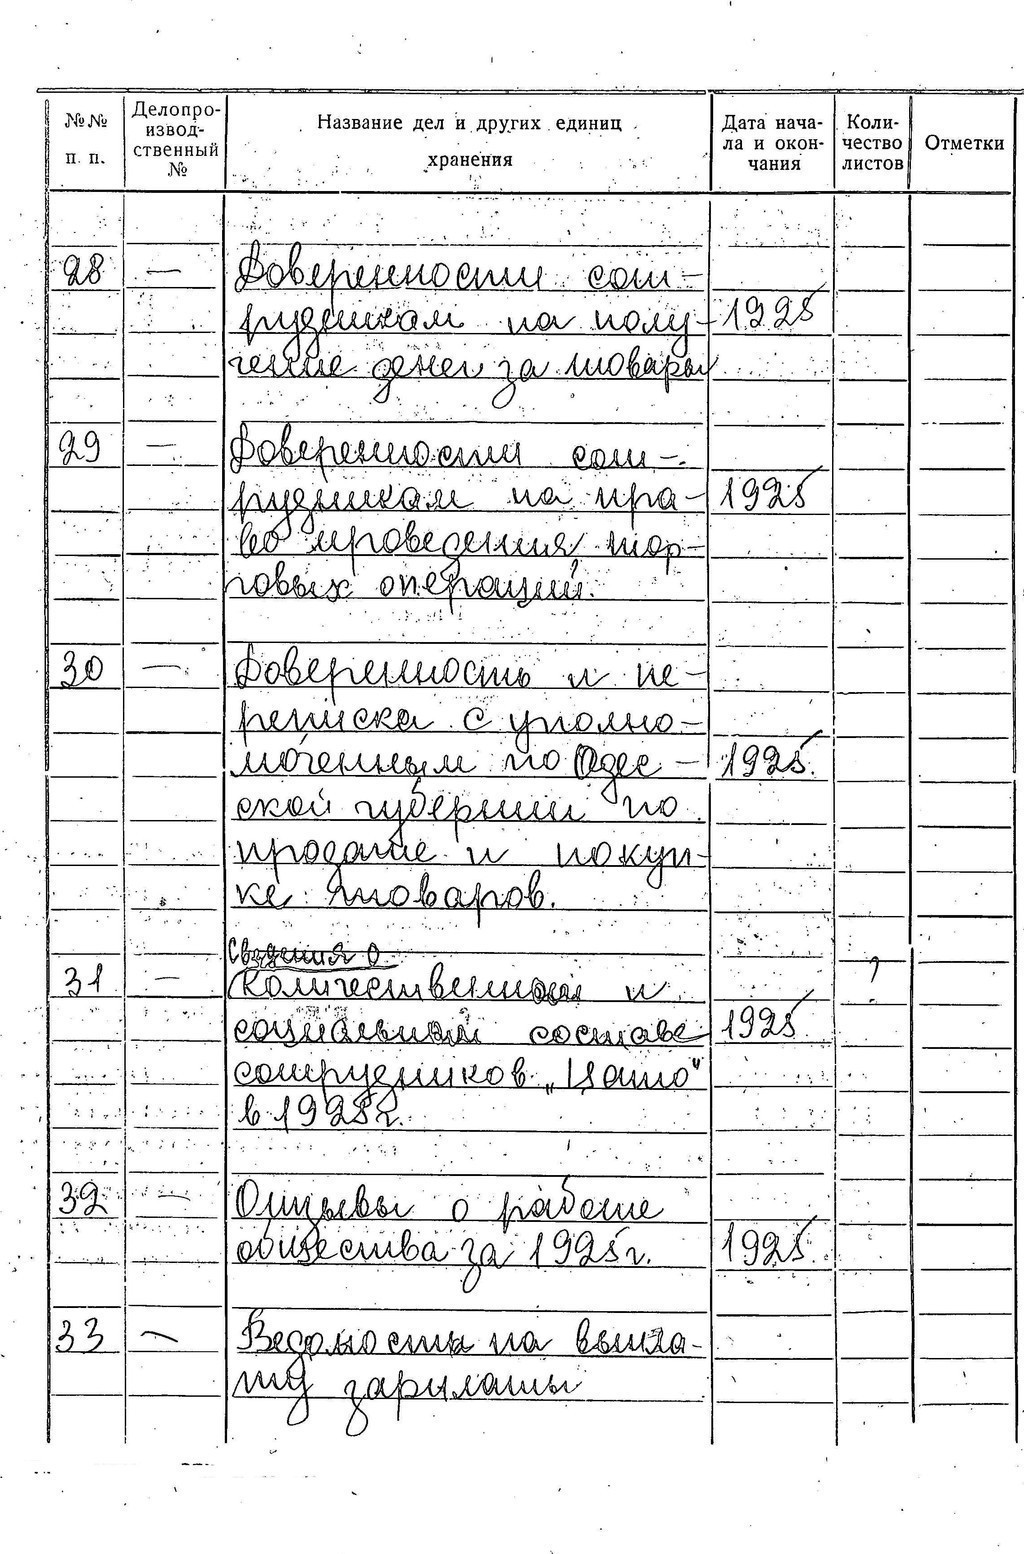 №№ п. п.
Делопро-
извод-
ственный
№
Название дел и других единиц
хранения
Дата нача-
ла и окон-
чания
Коли-
чество
листов
Отметки
28 — Доверенности сот-
рудникам на полу- 1925
чение денег за товары
29 — Доверенности сот-
рудникам на пра- 1925
во проведения тор-
говых операций.
30 — Доверенность и пе-
реписка с уполно-
моченным по Одес- 1925
ской губернии по
продаже и покуп-
ке товаров.
Сведения о
31 — количественном и ?
социальном составе 1925
сотрудников „Цато"
в 1925 г.
32 — Отзывы о работе
общества за 1925 г. 1925
33 — Ведомости на выпла-
ту зарплаты